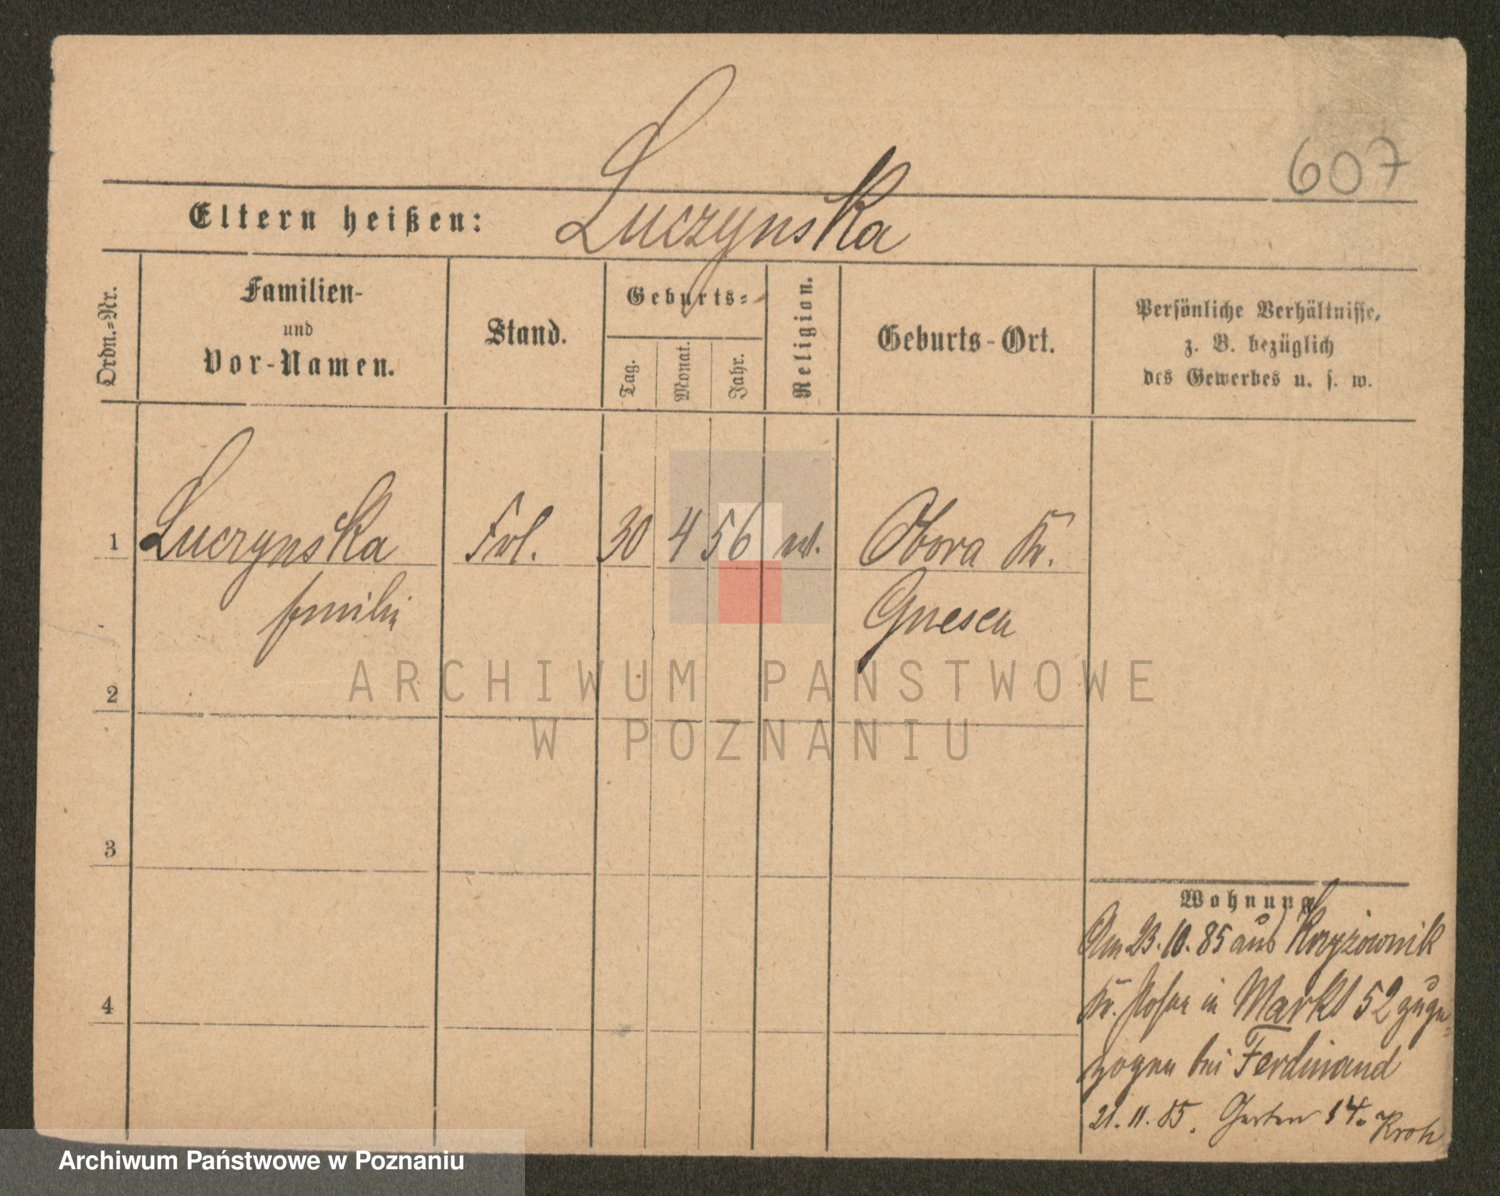 607
Eltern heißen: Luczynska
Ordn.-Nr.
Familien-
und
Vor-Namen.
Stand.
Geburts-
Tag.
Monat.
Jahr.
Religion.
Geburts-Ort.
Persönliche Verhältnisse,
z. B. bezüglich
des Gewerbes u. s. w.
1 Luczynska Frl. 30 4 56 Obora Kr.
Gnesen
2
3
4
Wohnung
Am 23.10.85 aus
Kr. Posen in Markt 52 zuge-
zogen bei Ferdinand
21.11.85. Garten 14.
ARCHIWUM PAŃSTWOWE
W POZNANIU
Archiwum Państwowe w Poznaniu